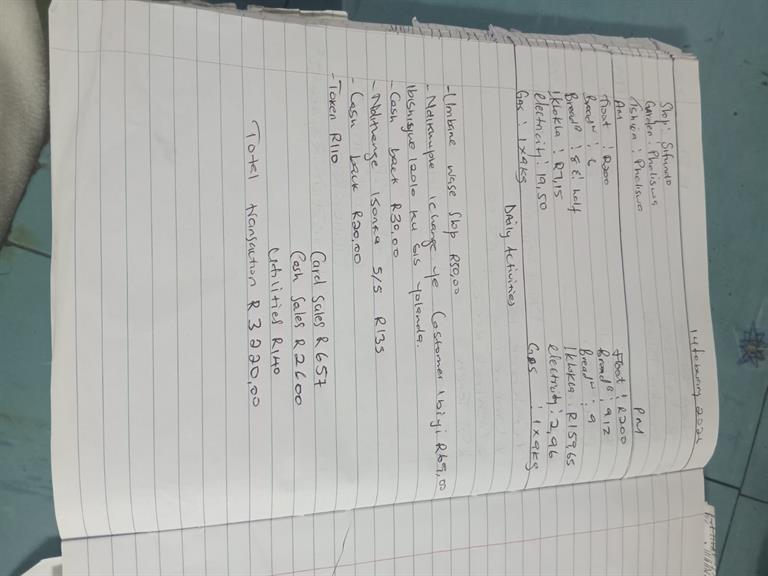 14 February 2024
Shop: Sifundo
Garden: Pheliswa
Tshisa: Pheliswa
AM
Float : R200
Bread w : 6
Bread B : 8 & half
iklokha : R7,15
electricity : 19,50
Gas : 1x9kg
PM
Float : R200
Bread B : 9 1/2
Bread w : 9
iklokha : R159,65
electricity : 2,96
Gas : 1x9kg
Daily Activities
- Umbane wase Shop R50,00
- Ndikhuphe ichange ye Costomer ibiyi R69,00
ibishiywe izolo ku sis yolanda.
- Cash back R30,00
- Ndithenge isonka 5/5 R135
- Cash back R20,00
- Token R110
Card Sales R 657
Cash Sales R 2600
Utilities R140
Total transaction R 3220,00